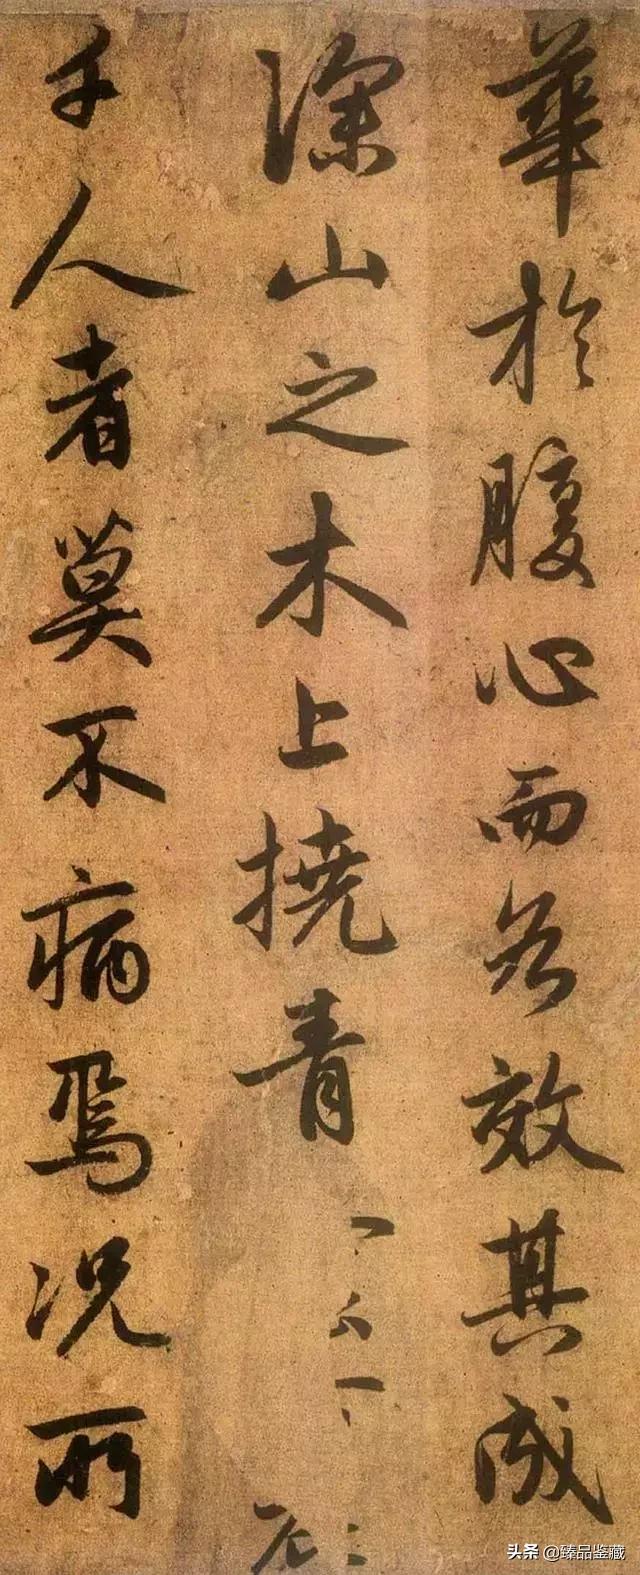 華於腹心而各效其成
深山之木上撓青
于人者莫不病焉况所
头条 @臻品鉴藏